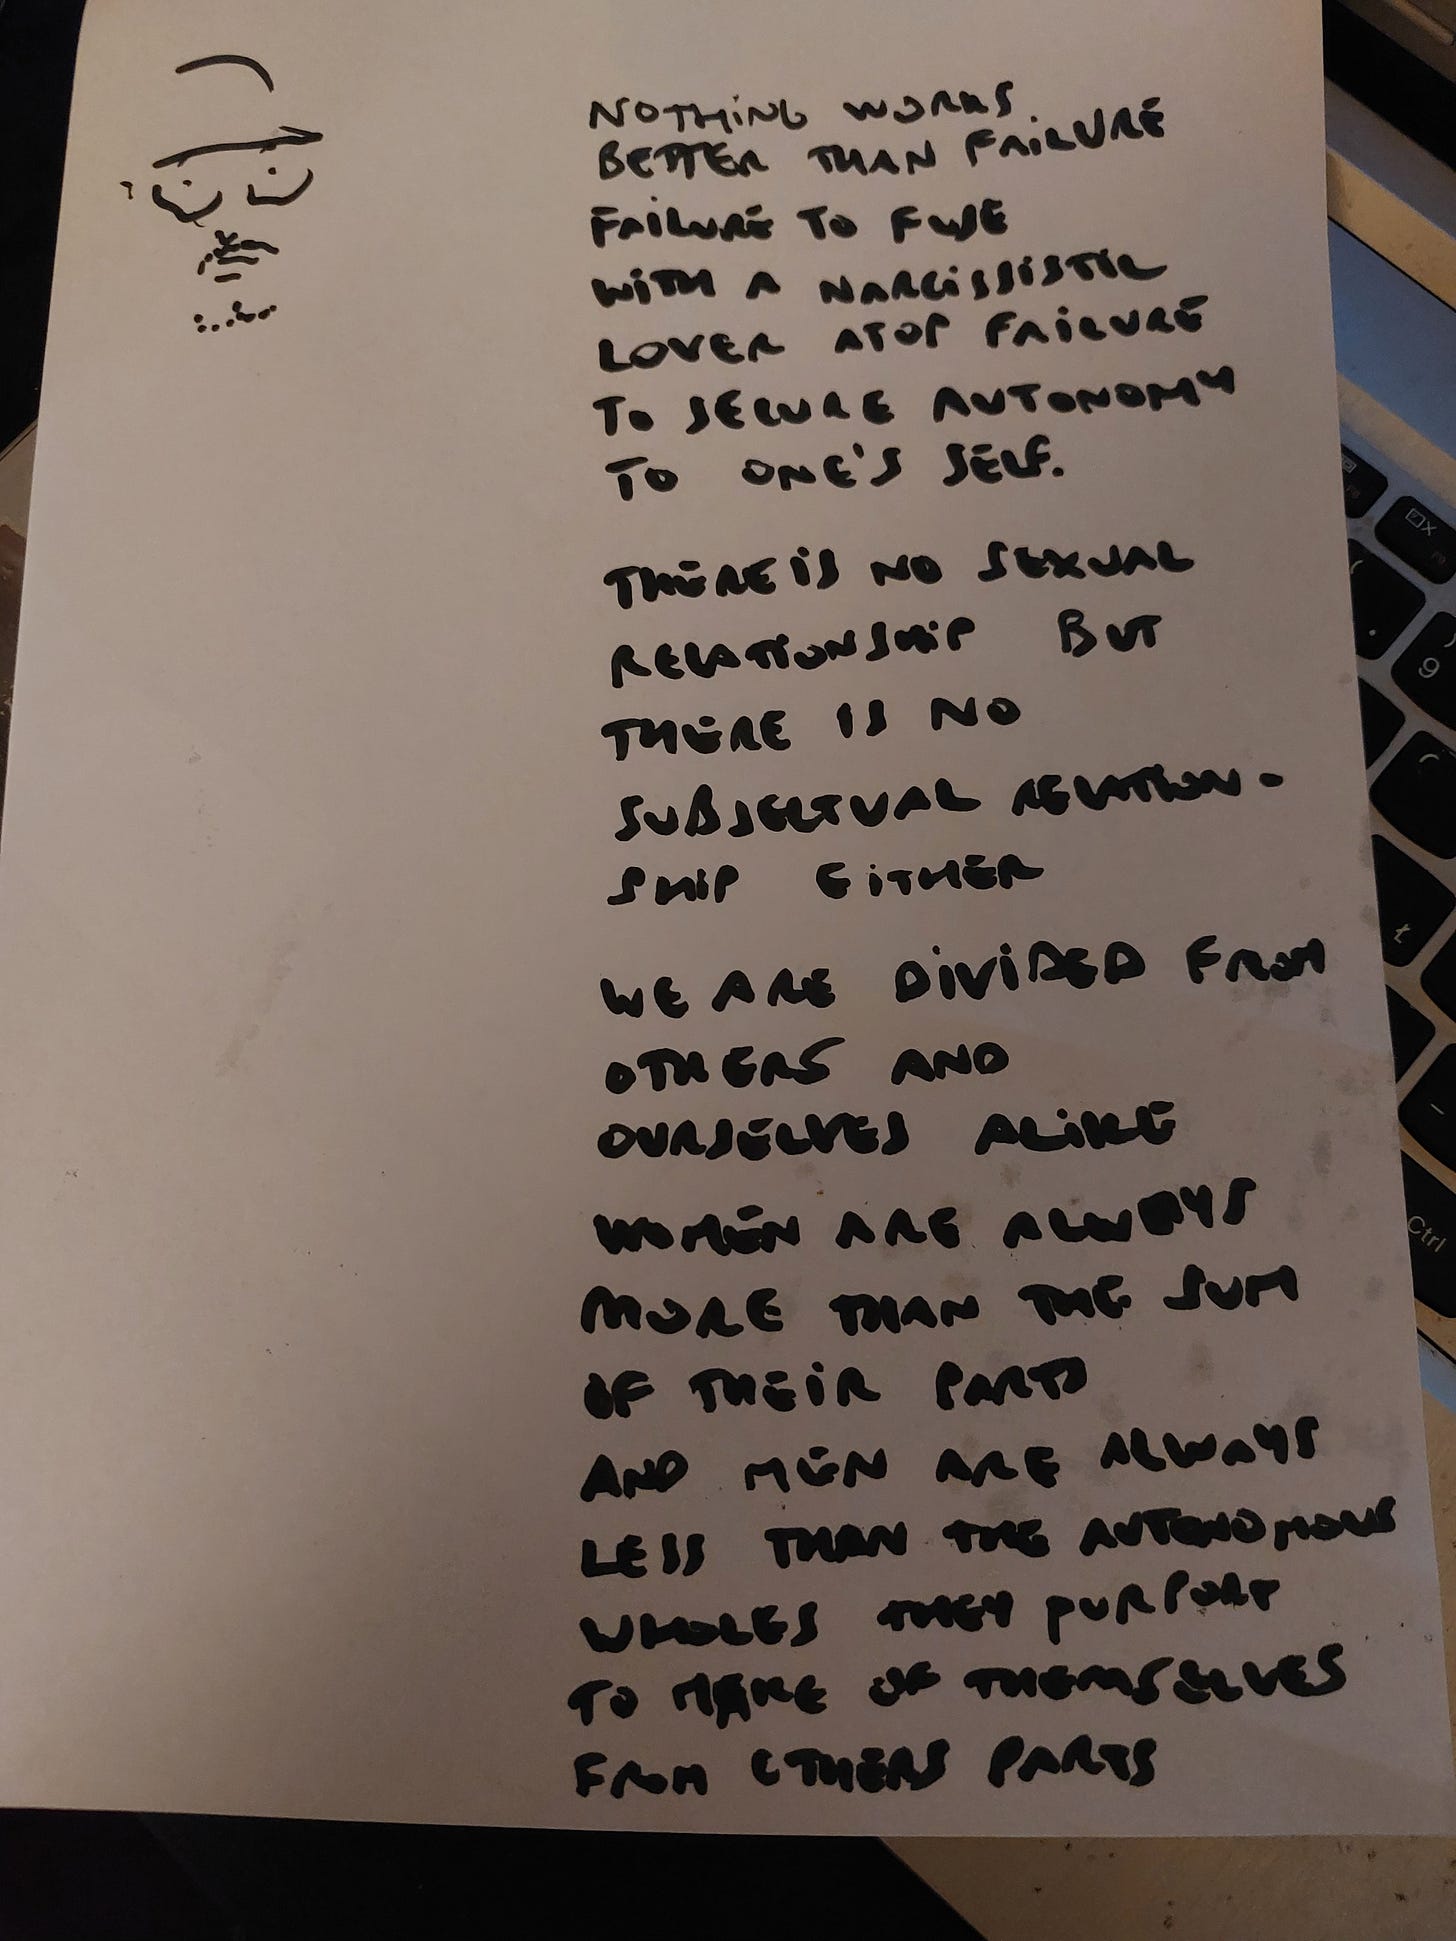 NOTHING WORKS
BETTER THAN FAILURE
FAILURE TO FUSE
WITH A NARCISSISTIC
LOVER ATOP FAILURE
TO SECURE AUTONOMY
TO ONE'S SELF.
THERE IS NO SEXUAL
RELATIONSHIP BUT
THERE IS NO
SUBJECTUAL RELATION-
SHIP EITHER
WE ARE DIVIDED FROM
OTHERS AND
OURSELVES ALIKE
WOMEN ARE ALWAYS
MORE THAN THE SUM
OF THEIR PARTS
AND MEN ARE ALWAYS
LESS THAN THE AUTONOMOUS
WHOLES THEY PURPORT
TO MAKE OF THEMSELVES
FROM OTHERS PARTS
9
t
Ctrl